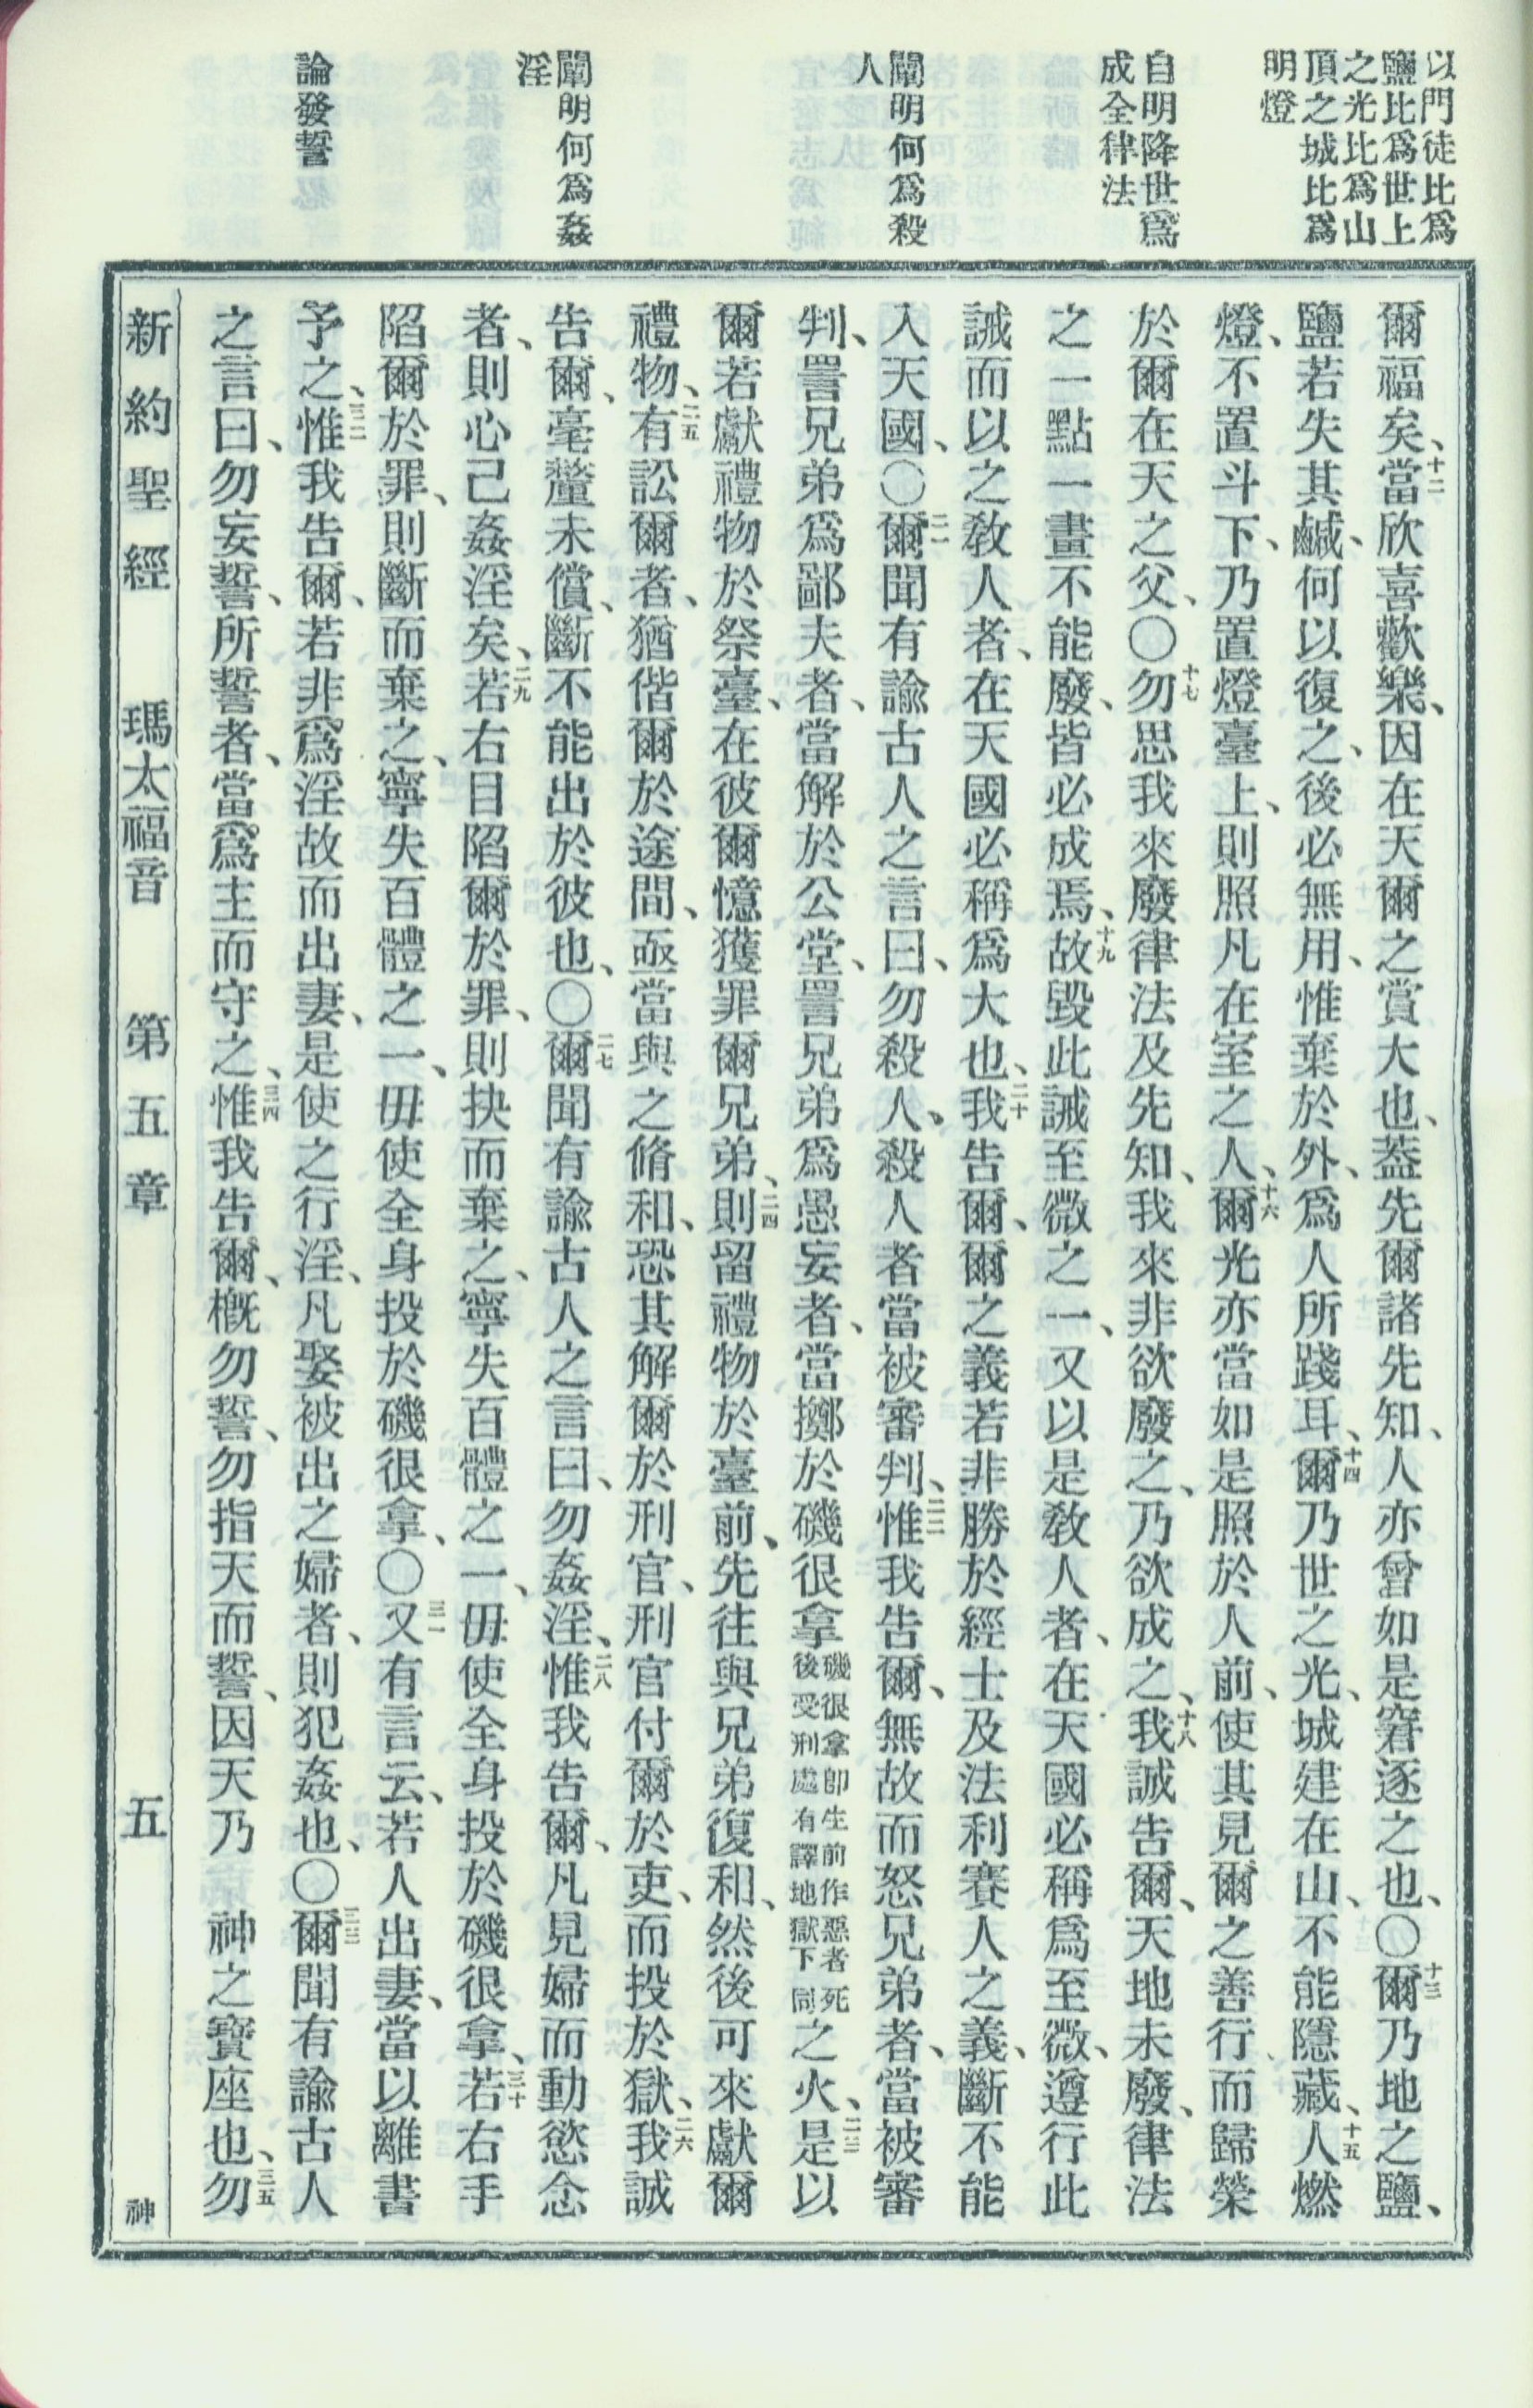 以門徒比爲
鹽比爲世上
之光比爲山
頂之城比爲
明燈
自明降世爲
成全律法
闡明何爲殺
人
闡明何爲姦
淫
論發誓
爾福矣、十二當欣喜歡樂、因在天爾之賞大也、蓋先爾諸先知、人亦曾如是窘逐之也、〇十三爾乃地之鹽、
鹽若失其鹹、何以復之、後必無用、惟棄於外、爲人所踐耳、十四爾乃世之光、城建在山、不能隱藏、十五人燃
燈、不置斗下、乃置燈臺上、則照凡在室之人、十六爾光亦當如是照於人前、使其見爾之善行、而歸榮
於爾在天之父、〇十七勿思我來廢律法及先知、我來非欲廢之、乃欲成之、十八我誠告爾、天地未廢、律法
之一點一畫不能廢、皆必成焉、十九故毀此誡至微之一、又以是敎人者、在天國必稱爲至微、遵行此
誡而以之敎人者、在天國必稱爲大也、二十我告爾、爾之義若非勝於經士及法利賽人之義、斷不能
入天國、〇二一爾聞有諭古人之言曰、勿殺人、殺人者當被審判、二二惟我告爾、無故而怒兄弟者、當被審
判、詈兄弟爲鄙夫者、當解於公堂、詈兄弟爲愚妄者、當擲於磯很拿磯很拿卽生前作惡者死後受刑處有譯地獄下同之火、二三是以
爾若獻禮物於祭臺、在彼爾憶獲罪爾兄弟、二四則留禮物於臺前、先往與兄弟復和、然後可來獻爾
禮物、二五有訟爾者、猶偕爾於途間、亟當與之脩和、恐其解爾於刑官、刑官付爾於吏、而投於獄、二六我誠
告爾、毫釐未償、斷不能出於彼也、〇二七爾聞有諭古人之言曰、勿姦淫、二八惟我告爾、凡見婦而動慾念
者、則心己姦淫矣、二九若右目陷爾於罪、則抉而棄之、寧失百體之一、毋使全身投於磯很拿、三十若右手
陷爾於罪、則斷而棄之、寧失百體之一、毋使全身投於磯很拿、〇三一又有言云、若人出妻、當以離書
予之、三二惟我告爾、若非爲淫故而出妻、是使之行淫、凡娶被出之婦者、則犯姦也、〇三三爾聞有諭古人
之言曰、勿妄誓、所誓者、當爲主而守之、三四惟我告爾、槪勿誓、勿指天而誓、因天乃 神之寶座也、三五勿
新約聖經 瑪太福音 第五章 五 神